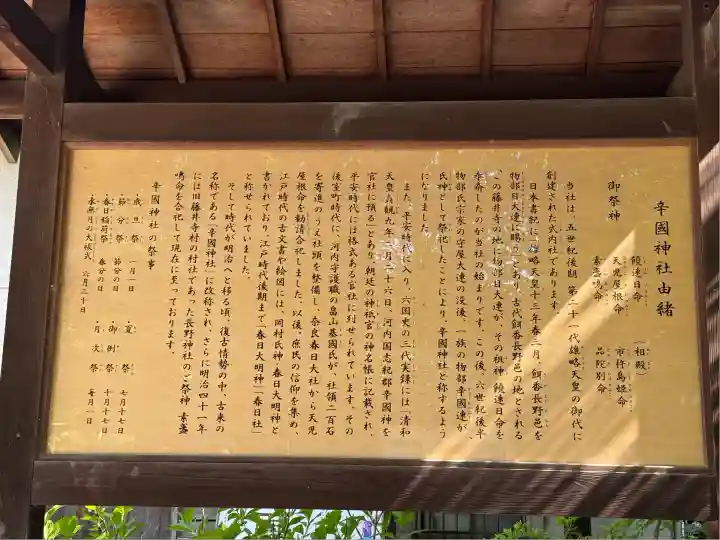 辛國神社由緒
御祭神
饒速日命
天児屋根命
素盞嗚命
相殿
市杵島姫命
品陀別命
当社は、五世紀後期 第二十一代雄略天皇の御代に
創建された式内社であります。
日本書紀に「雄略天皇十三年春三月、餌香長野邑を
物部目大連に賜う」とあり、古代餌香長野邑の地とされる
この藤井寺の地に物部目大連が、その祖神 饒速日命を
奉斎したのが当社の始まりです。この後、六世紀後半
物部氏宗家の守屋大連の没後、一族の物部辛國連が、
氏神として祭祀したことにより、辛國神社と称するよう
になりました。
また、平安時代に入り、六国史の三代実録には「清和
天皇貞観九年二月二十六日、河内国志紀郡辛國神を
官社に預る」とあり、朝廷の神祇官の神名帳に記載され、
平安時代には格式ある官社に列せられています。その
後室町時代に、河内守護職の畠山基國氏が、社領二百石
を寄進のうえ社頭を整備し、奈良春日大社から天児
屋根命を勧請合祀しました。以後、庶民の信仰を集め、
江戸時代の古文書や絵図には、岡村氏神 春日大明神と
書かれており、江戸時代後期まで「春日大明神」「春日社」
と称せられていました。
そして時代が明治へと移る頃、復古情勢の中、古来の
名称である「辛國神社」に改称され、さらに明治四十一年
には旧藤井寺村の村社であった長野神社のご祭神 素盞
嗚命を合祀して現在に至っております。
辛國神社の祭事
・歳旦祭 一月一日
・節分祭 節分の日
・春日稲荷祭 春分の日
・水無月の大祓式 六月三十日
・夏祭 七月十七日
・御例祭 十月十七日
・月次祭 毎月一日